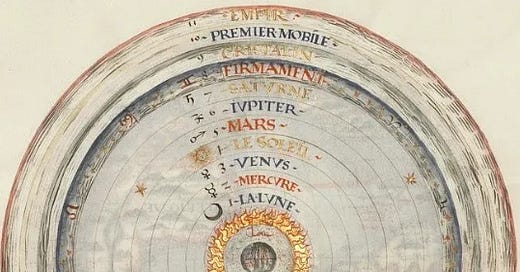 11 · EMPIR ·
10 · PREMIER MOBILE ·
9 CRISTALIN
8 FIRMAMENT
7 · SATVRNE
6 · IVPITER ·
5 · MARS ·
4 · LE SOLEIL
3 · VENVS ·
2 · MERCVRE ·
1 · LA · LVNE ·